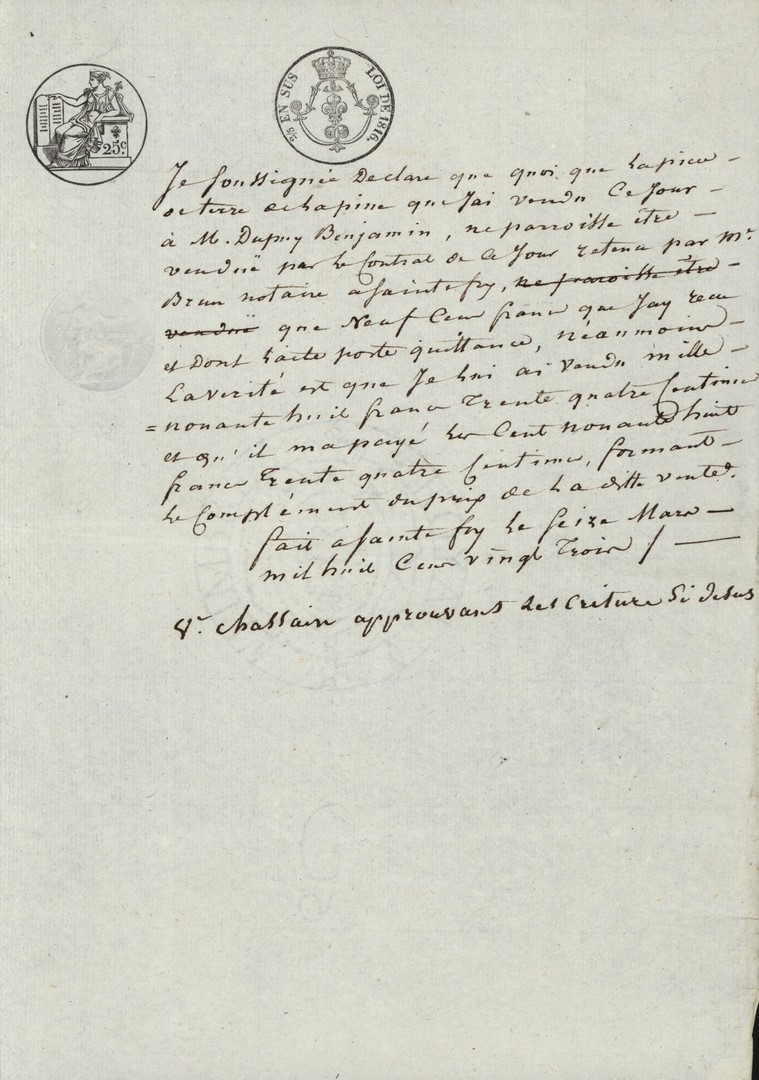 25c.
2/5 EN SUS LOI DE 1816.
Je soussignée Declare que quoi que la piece
de terre de lapine que Jai vendu Ce Jour
à M. Dupuy Benjamin, ne paroisse être
venduë par le Contrat de ce Jour retenu par Mr.
Brun notaire a Sainte foy, ne paroisse être
venduë que Neuf Cens francs que Jay recu
et Dont L'acte porte quittance, néanmoins
La verité est que Je lui ai vendu mille
= nonante huit francs Trente quatre Centimes
et qu'il m'a payé les Cent nonante huit
francs Trente quatre Centimes, formant
Le Complément du prix de La ditte vente.
fait a Sainte foy le Seize Mars
mil huit Cens vingt Trois /
Chassain approuvant Les criture Si desus